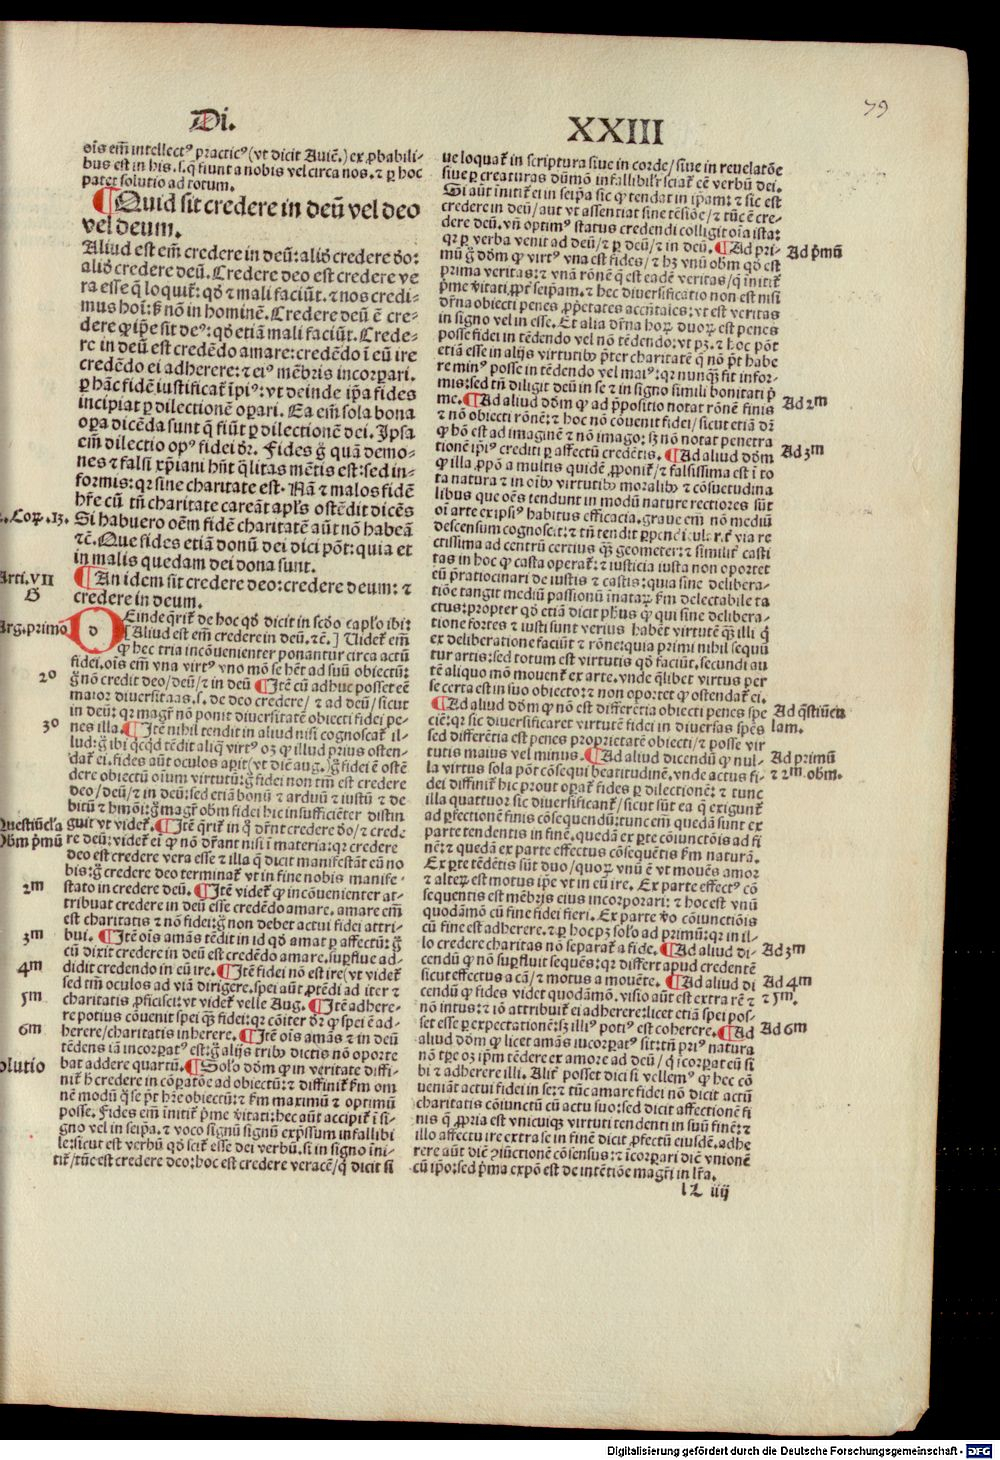 79
Di.
XXIII
oīs em̄ intellectꝰ practicꝰ (vt dicit Auiē.) ex ꝓbabili-
bus est in his .s. q̄ fiunt a nobis vel circa nos. ⁊ ꝑ hoc
patet solutio ad totum.
¶ Quid sit credere in deū vel deo
vel deum.
Aliud est em̄ credere in deū: aliđ credere đo:
aliđ credere deū. Credere deo est credere ve
ra esse q̄ loquit̄: qđ ⁊ mali faciūt. ⁊ nos credi-
mus hoī: s̄ꝫ nō in hominē. Credere deū ē cre-
dere ꝙ ip̄e sit deꝰ: qđ etiā mali faciūt. Crede-
re in deū est credēdo amare: credēdo ī eū ire
credēdo ei adherere: ⁊ eiꝰ mēbris incorꝑari.
ꝑ hāc fidē iustificat̄ īpiꝰ: vt deinde ip̄a fides
incipiat ꝑ dilectionē oꝑari. Ea em̄ sola bona
oꝑa dicēda sunt q̄ fiūt ꝑ dilectionē dei. Ipsa
em̄ dilectio opꝰ fidei dr̄. Fides g̊ quā demo-
nes ⁊ falsi xp̄iani hn̄t q̄litas mētis est: sed in-
formis: qꝛ sine charitate est. Nā ⁊ malos fidē
hr̄e cū tn̄ charitate careāt apl̄s ostēdit dicēs
. Coꝝ .13. Si habuero oēm fidē charitatē aūt nō habeā
⁊c̄. Que fides etiā donū dei dici pōt: quia et
in malis quedam dei dona sunt.
Arti. VII ¶ An idem sit credere deo: credere deum: ⁊
G credere in deum.
Arg. primo Deinde q̄rit̄ de hoc qđ dicit in scđo capl̄o ibi:
[Aliud est em̄ credere in deū. ⁊c̄.] Videt̄ em̄
ꝙ hec tria incōuenienter ponantur circa actū
fidei. oīs em̄ vna virtꝰ vno mō se hēt ad suū obiectū:
2º g̊ nō credit deo/deū/⁊ in deū ¶ Itē cū adhuc posset eē
maior diuersitas .s. de deo credere/ ⁊ ad deū/sicut
in deū: qꝛ magr̄ nō ponit diuersitatē obiecti fidei pe-
3º nes illa. ¶ Itē nihil tendit in aliud nisi cognoscat̄ il-
lud: g̊ ibi qc̄qd tēdit aliq̄ virtꝰ oꝫ ꝙ illud prius osten-
dat̄ ei. fides aūt oculos aꝑit (vt diē aug.) g̊ fidei ē ostē
dere obiectū oīum virtutū: g̊ fidei non tm̄ est credere
deo/deū/⁊ in deū: sed etiā bonū ⁊ arduū ⁊ iustū ⁊ de
bitū ⁊ hmōi: g̊ magr̄ obm̄ fidei hic insufficiēter distin
Questiūcl̄a guit vt videt̄. ¶ Itē q̄rit̄ in q̄ drn̄t credere đo/⁊ crede
Obm p̄mū re deū: videt̄ ei ꝙ nō dr̄ant nisi ī materia: qꝛ credere
deo est credere vera esse ⁊ illa q̄ dicit manifestāt eū no
bis: g̊ credere deo terminat̄ vt in fine nobis manife-
2m stato in credere deū. ¶ Itē videt̄ ꝙ incōuenienter at-
tribuat credere in deū esse credēdo amare. amare em̄
est charitatis ⁊ nō fidei: g̊ non debet actui fidei attri-
3m bui. ¶ Itē oīs amās tēdit in id qđ amat ꝑ affectū: g̊
cū dixit credere in deū est credēdo amare. suꝑflue ad-
4m didit credendo in eū ire. ¶ Itē fidei nō est ire (vt videt̄
sed tm̄ oculos ad viā dirigere. spei aūt ꝓtēdi ad iter ⁊
5m charitatis ꝓficisci: vt videt̄ velle Aug. ¶ Itē adhere-
re potius cōuenit spei q̄ꝫ fidei: qꝛ cōiter dr̄ ꝙ spei ē ad-
6m herere/charitatis inherere. ¶ Itē oīs amās ⁊ in deū
tēdens iā incorꝑatꝰ est: g̊ alijs tribꝰ dictis nō oporte
olutio bat addere quartū. ¶ Solo đom̄ ꝙ in veritate diffi-
nit̄ h̄ credere in cōꝑatōne ad obiectū: ⁊ diffinit̄ km̄ om
nē modū q̄ se p̄t hr̄e obiectū: ⁊ km̄ maximū ⁊ optimū
posse. Fides em̄ īnitit̄ p̄me v̄itati: hec aūt accipit̄ ī si-
gno vel in seip̄a. ⁊ voco signū signū exp̄ssum infallibi
le: sicut est verbū qđ scit̄ esse dei verbū. si in signo ini-
tit̄/tūc est credere deo: hoc est credere veracē/q̄ dicit si
ue loquat̄ in scriptura siue in corde/siue in reuelatōe
siue ꝑ creaturas dūmō infallibilr̄ sciat̄ eē verbū dei.
Si aūt īnitit̄ ei in seip̄a sic ꝙ tendat in ip̄am: ⁊ sic est
credere in deū/aut vt assentiat sine tēsiōe/⁊ tūc ē cre-
dere deū. vn̄ optimꝰ status credendi colligit oīa ista:
qꝛ ꝑ verba venit ad deū/⁊ ꝑ deū/⁊ in deū. ¶ Ad pri- Ad p̄mū
mū g̊ đom̄ ꝙ virtꝰ vna est fides/⁊ hꝫ vnū obm̄ qđ est
prima veritas: ⁊ vnā rōnē q̄ est eadē veritas/q̄ īnitit̄
p̄me v̄itati. ꝓpt̄ seip̄am. ⁊ hec diuersificatio non est nisi
dr̄na obiecti penes ꝓp̄etates accn̄tales: vt est veritas
in signo vel in esse. Et alia dr̄na hoꝝ duoꝝ est penes
posse fidei in tēdendo vel nō tēdendo: vt pꝫ. ⁊ hoc pōt
etiā esse in alijs virtutibꝰ p̄ter charitatē q̄ nō p̄t habe
re minꝰ posse in tēdendo vel maiꝰ: qꝛ nunq̄ꝫ fit infor-
mis: sed tn̄ diligit deū in se ⁊ in signo simili bonitati p̄
me. ¶ Ad aliud đom̄ ꝙ ad p̄positio notat rōnē finis Ad 2m
⁊ nō obiecti rōnē: ⁊ hoc nō cōuenit fidei/sicut etiā dr̄
ꝙ hō est ad imaginē ⁊ nō imago: sꝫ nō notat penetra
tionē ip̄iꝰ crediti ꝑ affectū credētis. ¶ Ad aliud đom̄ Ad 3m
ꝙ illa ꝓpō a multis quidē ꝓponit̄/⁊ falsissima est ī to
ta natura ⁊ in oībꝰ virtutibꝰ moralibꝰ ⁊ cōsuetudina
libus que oēs tendunt in modū nature rectiores sūt
oī arte ex ip̄siꝰ habitus efficacia. graue em̄ nō mediū
descensum cognoscit: ⁊ tn̄ tendit ꝑpendiculr̄r via re
ctissima ad centrū certius q̄ꝫ geometer: ⁊ similit̄ casti
tas in hoc ꝙ casta operat̄: ⁊ iusticia iusta non oportet
eū p̄ratiocinari de iustis ⁊ castis: quia sine delibera-
tiōe tangit mediū passionū īnataꝝ km̄ delectabile ta
ctus: propter qđ etiā dicit ph̄us ꝙ qui sine delibera-
tione fortes ⁊ iusti sunt verius habēt virtutē q̄ꝫ illi q̄
ex deliberatione faciūt ⁊ rōne: quia primi nihil sequū
tur artis: sed totum est virtutis qđ faciūt. secundi au
tē aliquo mō mouent̄ ex arte. vnde q̄libet virtus per
se certa est in suo obiecto: ⁊ non oportet ꝙ ostendat̄ ei.
¶ Ad aliud đom̄ ꝙ nō est differētia obiecti penes spe Ad q̄stiūcu
ciē: qꝛ sic diuersificaret virtutē fidei in diuersas spēs lam.
sed differētia est penes proprietatē obiecti/⁊ posse vir
tutis maius vel minus. ¶ Ad aliud dicendū ꝙ nul- Ad primū
la virtus sola pōt cōsequi beatitudinē. vnde actus fi- ⁊ 2m. obm.
dei diffinit̄ hic prout oꝑat̄ fides ꝑ dilectionē: ⁊ tunc
illa quattuor sic diuersificant̄/sicut sūt ea q̄ exigunt̄
ad ꝑfectionē finis cōsequendū: tunc em̄ quedā sunt ex
parte tendentis in finē. quedā ex ꝑte cōiunctōis ad fi
nē: ⁊ quedā ex parte effectus cōsequētis km̄ naturā.
Ex ꝑte tēdētis sūt duo/quoꝝ vnū ē vt mouēs amor
⁊ alteꝝ est motus ip̄e vt in eū ire. Ex parte effectꝰ cō
sequentis est mēbris eius incorporari: ⁊ hoc est vnū
quodāmō cū fine fidei fieri. Ex parte v̄o cōiunctiōis
cū fine est adherere. ⁊ ꝑ hoc pꝫ solo ad primū: qꝛ in il-
lo credere charitas nō separat̄ a fide. ¶ Ad aliud di- Ad 3m
cendū ꝙ nō suꝑfluit sequēs: qꝛ differt apud credentē
sicut effectus a cā/⁊ motus a mouēte. ¶ Ad aliud di Ad 4m
cendū ꝙ fides videt quodāmō. visio aūt est extra rē ⁊ ⁊ 5m.
nō intus: ⁊ iō attribuit̄ ei adherere: licet etiā spei pos-
set esse ꝑ expectationē: sꝫ illiꝰ potiꝰ est coherere. ¶ Ad Ad 6m
aliud đom̄ ꝙ licet amās incorꝑatꝰ sit: tn̄ priꝰ natura
nō tꝑe oꝫ ip̄m tēdere ex amore ad deū/q̄ īcorꝑat eū si
bi ⁊ adherere illi. Alit̄ posset dici si vellemꝰ ꝙ hec cō
ueniāt actui fidei in se: ⁊ tūc amare fidei nō dicit actū
charitatis cōiunctū cū actu suo: sed dicit affectionē fi
nis q̄ ꝓpria est vnicuiqꝫ virtuti tendenti in suū finē: ⁊
illo affectu ire extra se in finē dicit ꝓfectū eiusdē. adhe
rere aūt diē ꝯiūctionē cōsensus: ⁊ īcorꝑari diē vnionē
cū ip̄o: sed p̄ma expō est de intētiōe magr̄i in lr̄a.
l2 iiij
Digitalisierung gefördert durch die Deutsche Forschungsgemeinschaft - DFG